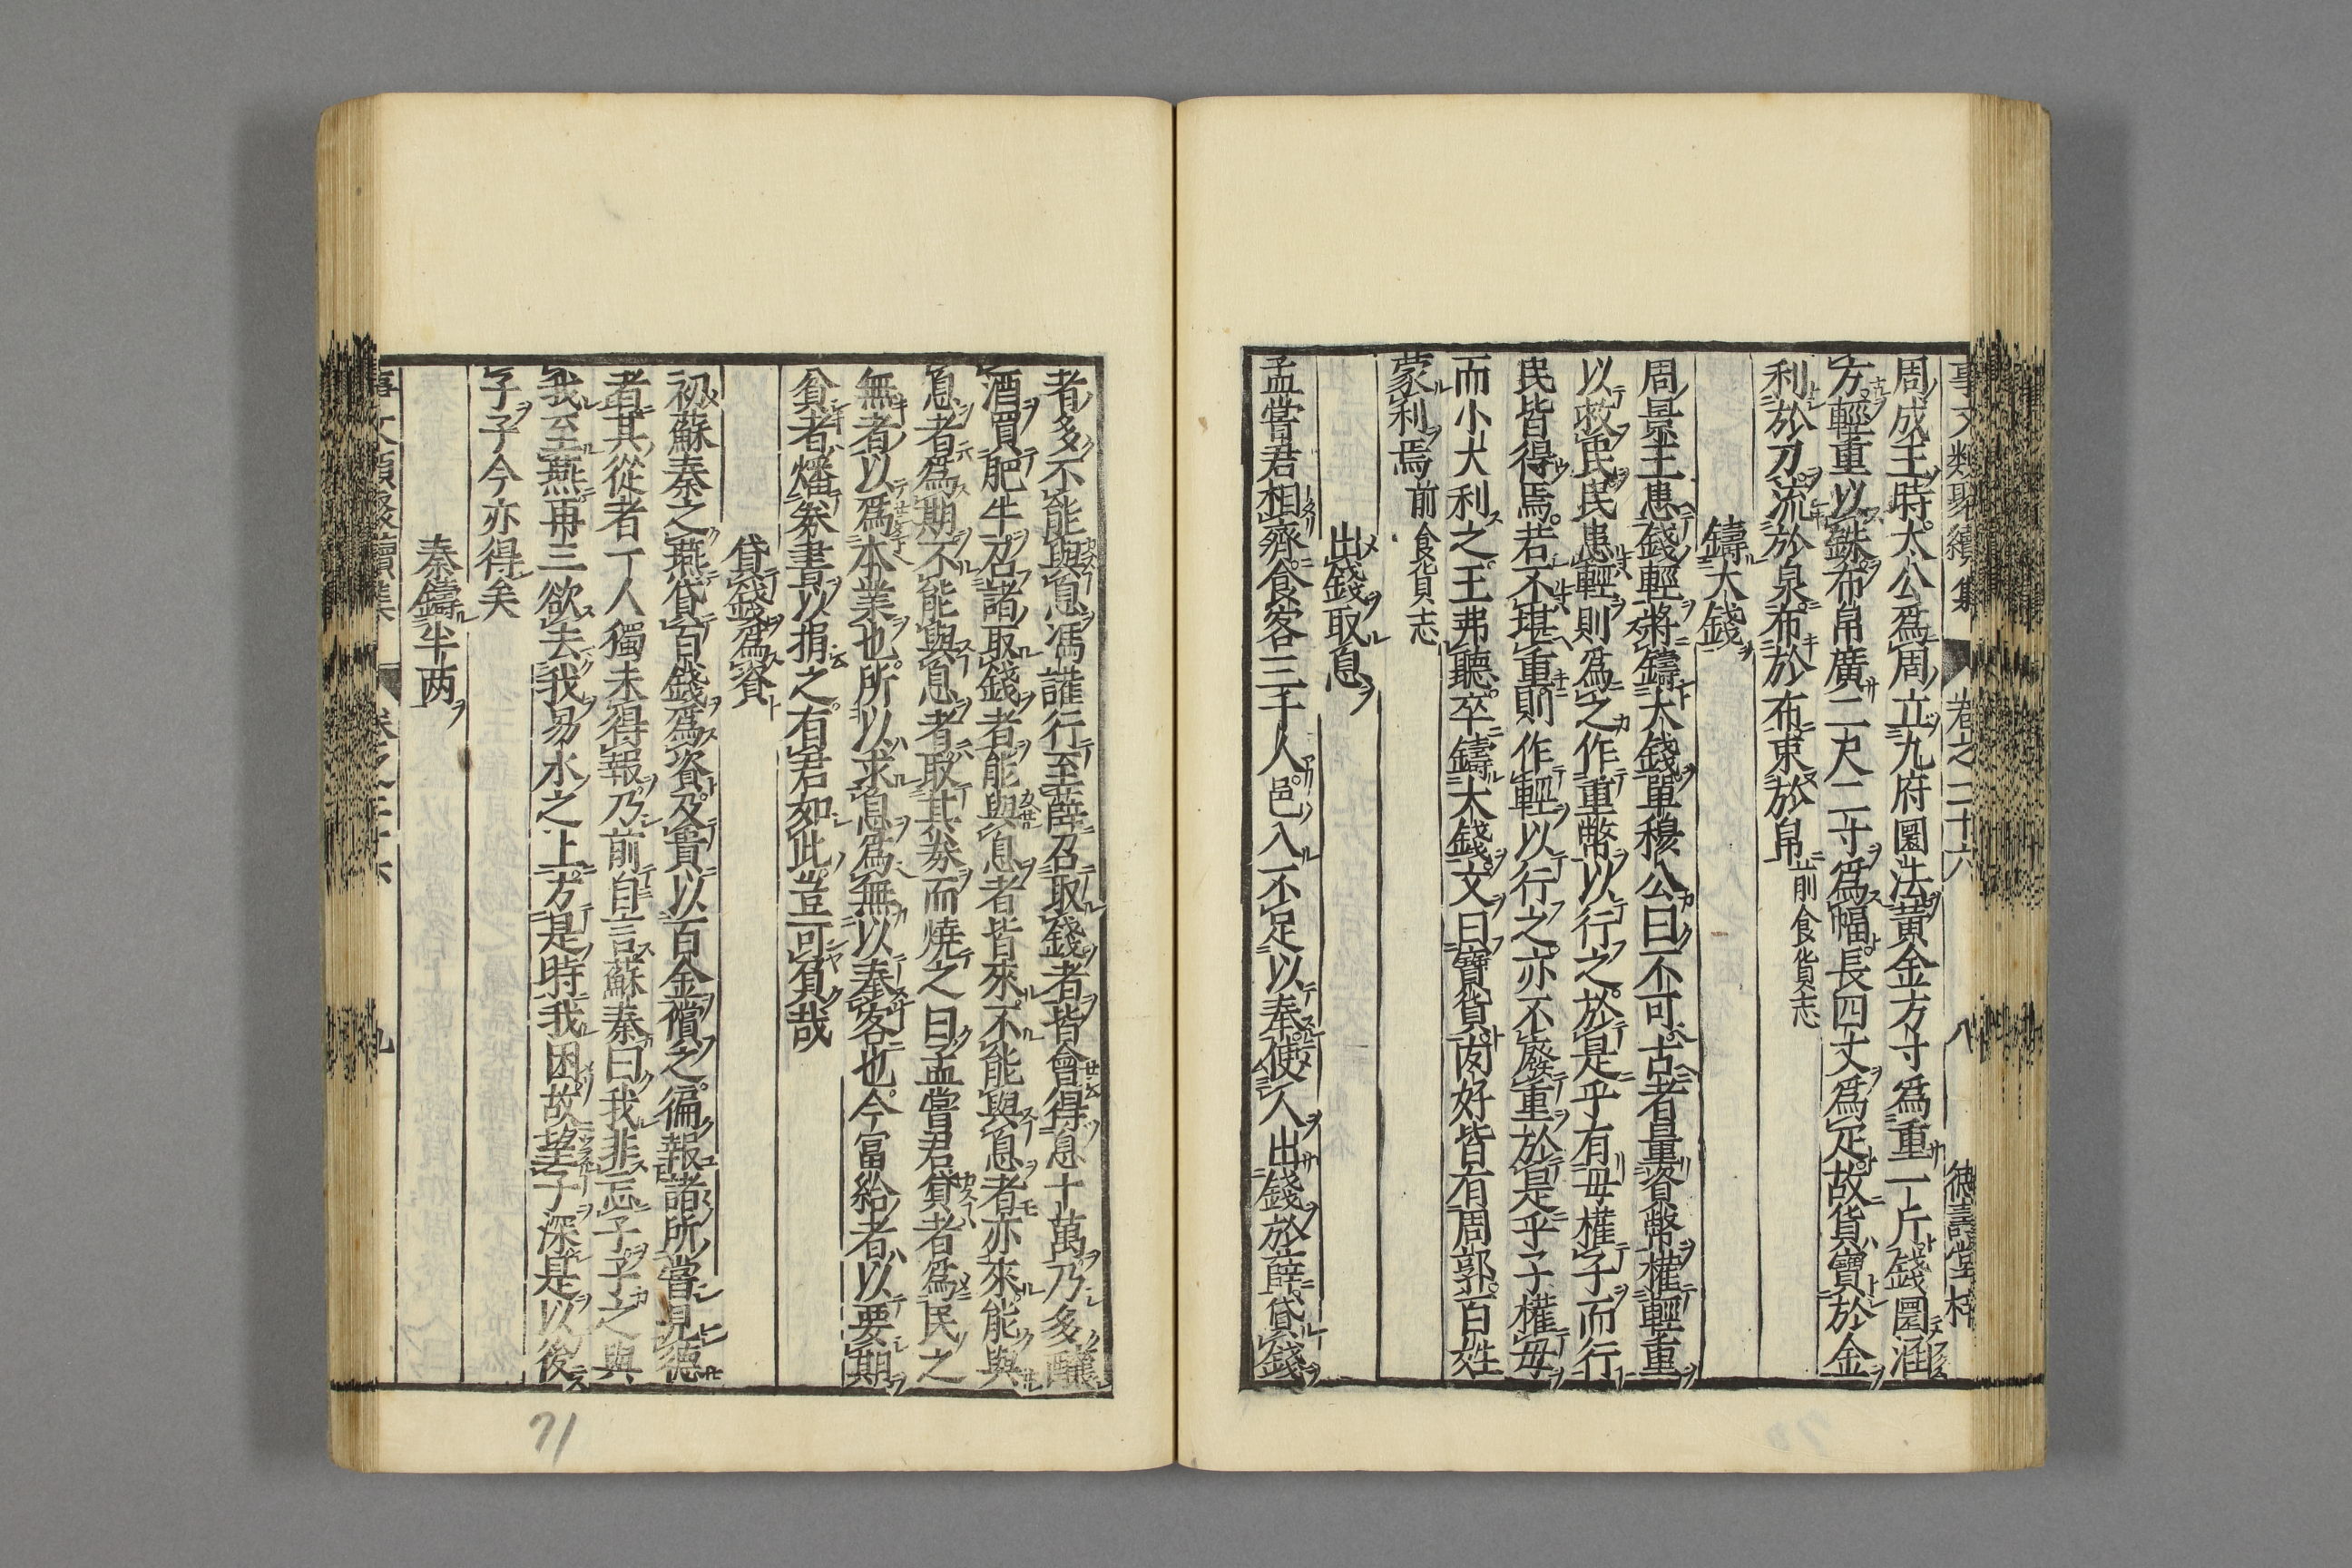 事文類聚續集 卷之二十六 八 德壽堂梓
周成王時太公爲周立九府圜法黃金方寸爲重一斤錢圜涵
方輕重以銖布帛廣二尺二寸爲幅長四丈爲疋故貨寶於金
利於刀流於泉布於布束於帛前食貨志
鑄大錢
周景王患錢輕將鑄大錢單穆公曰不可古者量資幣權輕重
以救民民患輕則爲之作重幣以行之於是乎有母權子而行
民皆得焉若不堪重則作輕以行之亦不廢重於是乎子權母
而小大利之王弗聽卒鑄大錢文曰寶貨肉好皆有周郭百姓
蒙利焉前食貨志
出錢取息
孟嘗君相齊食客三千人邑入不足以奉使人出錢放薛貸錢
者多不能與息馮讙行至薛召取錢者皆會得息十萬乃多釀
酒買肥牛召諸取錢者能與息者皆來不能與息者亦來能與
息者爲期不能與息者取其券而燒之曰孟嘗君貸者爲民之
無者以爲本業也所以求息爲無以奉客也今富給者以要期
貧者燔券書以捐之有君如此豈可負哉
貸錢爲資
初蘇秦之燕貸百錢爲資及貴以百金償之徧報諸所嘗見德
者其從者一人獨未得報乃前自言蘇秦曰我非忘子子之與
我至燕再三欲去我易水之上方是時我困故望子深是以後
子子今亦得矣
秦鑄半两
九
71